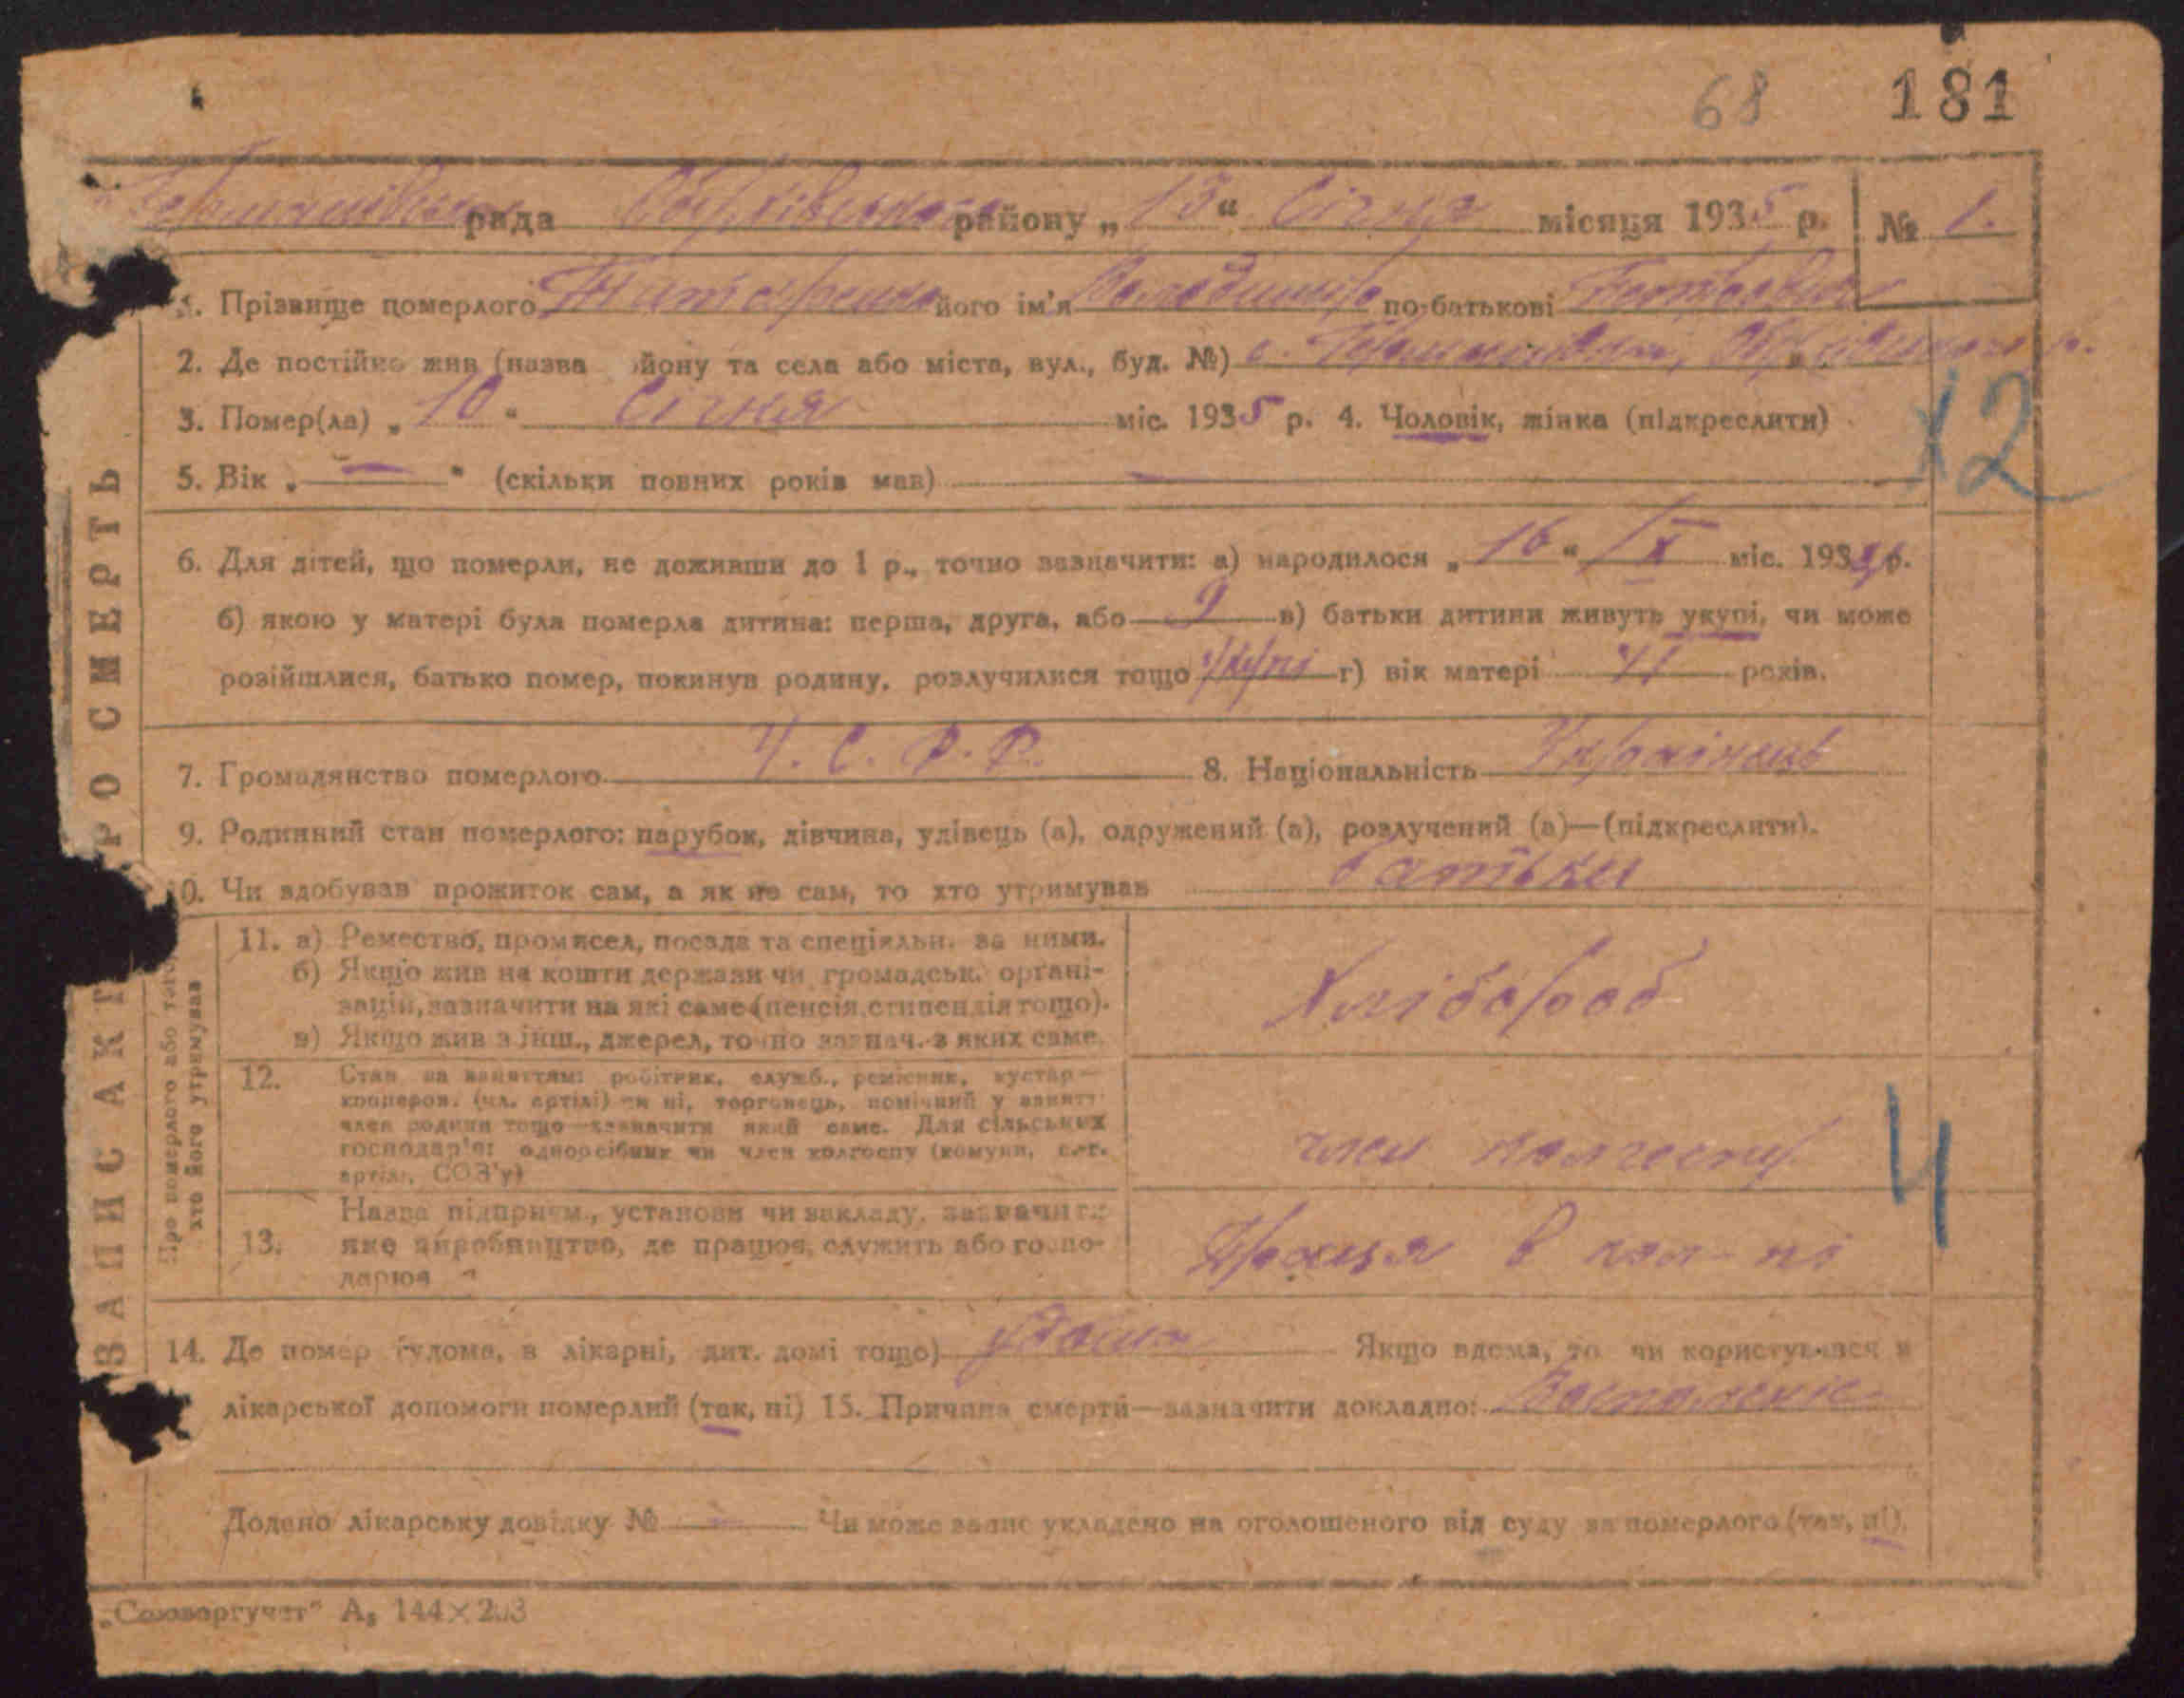 68 181
рада района „ 13 “ Січня місяця 1935 р. № 1.
1. Прізвище померлого його ім'я Володимир по-батькові
2. Де постійно жив (назва йону та села або міста, вул., буд. №) с.
3. Помер(ла) „ 10 “ Січня міс. 1935 р. 4. Чоловік, жінка (підкреслити)
х2
5. Вік „ — “ (скільки повних років мав) —
6. Для дітей, що померли, не доживши до 1 р., точно зазначити: а) народилося „ 16 “ IX міс. 1934 р.
б) якою у матері була померла дитина: перша, друга, або 9 в) батьки дитини живуть укупі, чи може
розійшлися, батько помер, покинув родину, розлучилися тощо укупі г) вік матері 41 років.
7. Громадянство померлого У. С. Р. Р. 8. Національність Українець
9. Родинний стан померлого: парубок, дівчина, удівець (а), одружений (а), розлучений (а)—(підкреслити).
10. Чи здобував прожиток сам, а як не сам, то хто утримував батьки
ЗАПИС АКТ РО СМЕРТЬ
Про померлого або того
хто його утримував
11. а) Ремество, промисел, посада та спеціяльн. за ними.
б) Якщо жив на кошти держави чи громадськ. органі-
зацій, зазначити на які саме (пенсія, стипендія тощо).
в) Якщо жив з інш., джерел, точно зазнач. з яких саме.
Хлібороб
12. Стан за заняттям: робітник, служб., ремісник, кустар—
кооперов. (чл. артілі) чи ні, торговець, помічний у занятт
член родини тощо—зазначити який саме. Для сільських
господар'в: одноосібник чи член колгоспу (комуни, с.-г.
артіл., СОЗ'у)
член колгоспу
4
13. Назва підприєм., установи чи закладу, зазначити
яке виробництво, де працює, служить або госпо-
дарює
Праця в кол-пі
14. Де помер (удома, в лікарні, дит. домі тощо) удома Якщо вдома, то чи користувався
лікарської допомоги померлий (так, ні) 15. Причина смерти—зазначити докладно: Воспаленіе
Додано лікарську довідку № — Чи може запис укладено на оголошеного від суду за померлого (так, ні).
„Союзоргучет“ А₅ 144×203